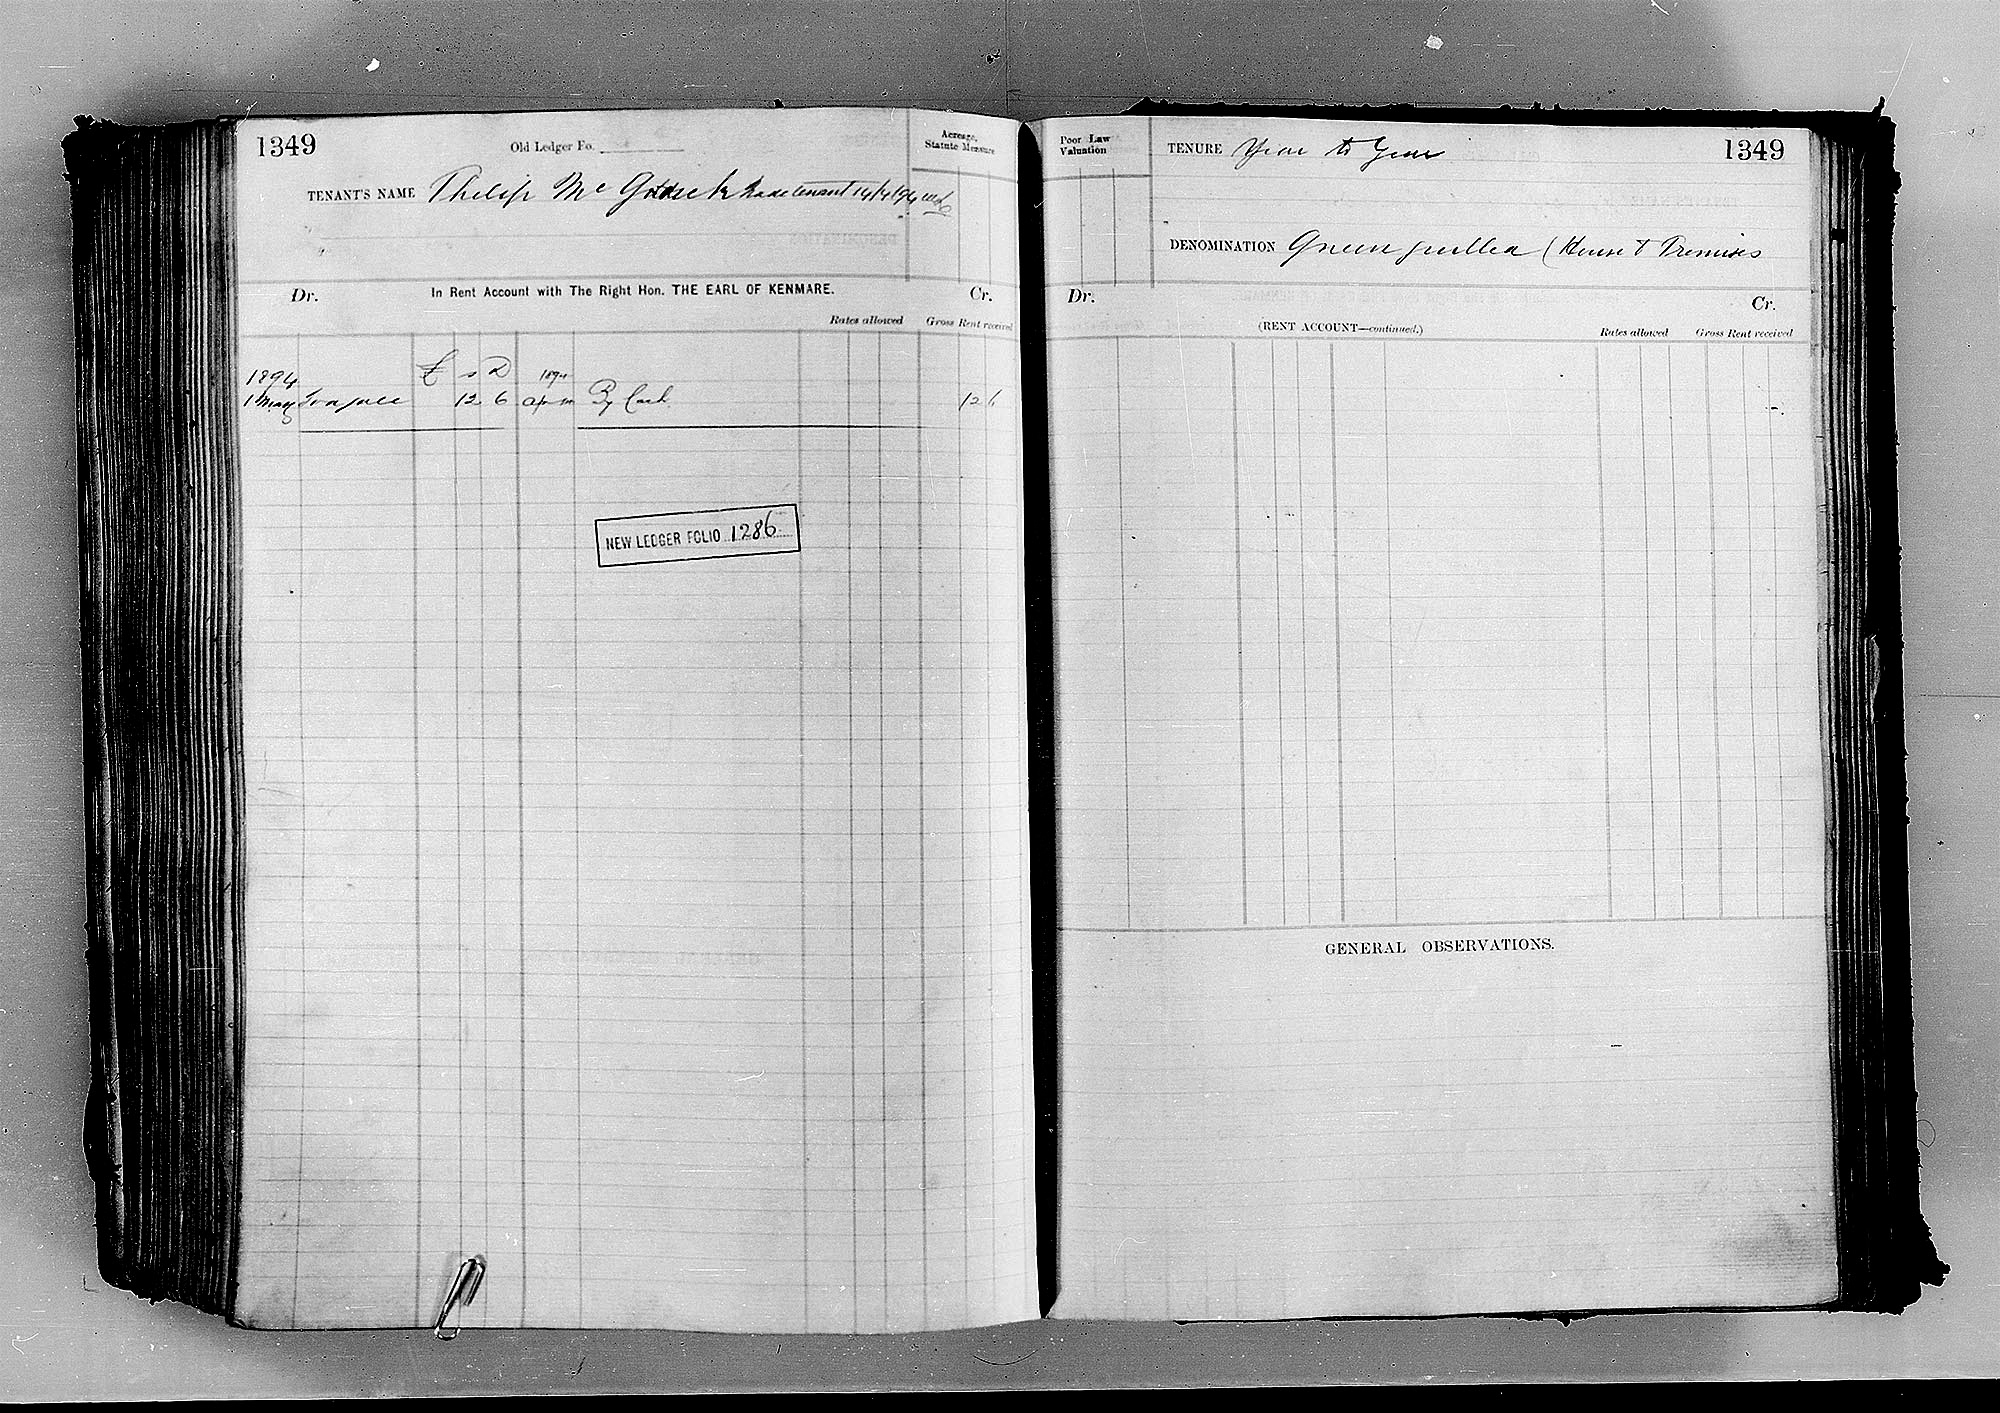 1349
Old Ledger Fo.
Acreage, Statute Measure
TENANT'S NAME Philip Mc made tenant 14/4/94
Dr. In Rent Account with The Right Hon. THE EARL OF KENMARE. Cr.
Rates allowed Gross Rent received
1894 £ s D 1894
1 May 12 6 By Cash 12 6
NEW LEDGER FOLIO 1286
Poor Law Valuation
TENURE Year to Year 1349
DENOMINATION (House & Premises
Dr. Cr.
(RENT ACCOUNT—continued.) Rates allowed Gross Rent received
GENERAL OBSERVATIONS.